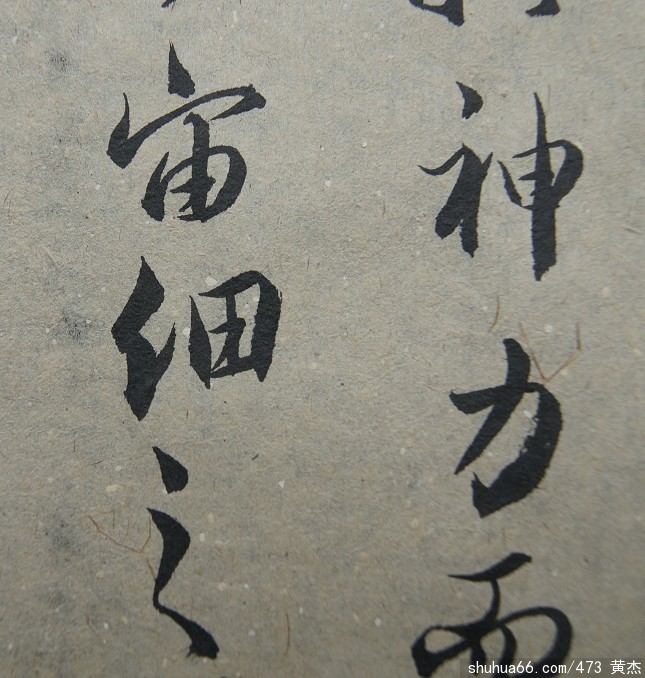 神力而
宙细之
shuhua66.com/473 黄杰